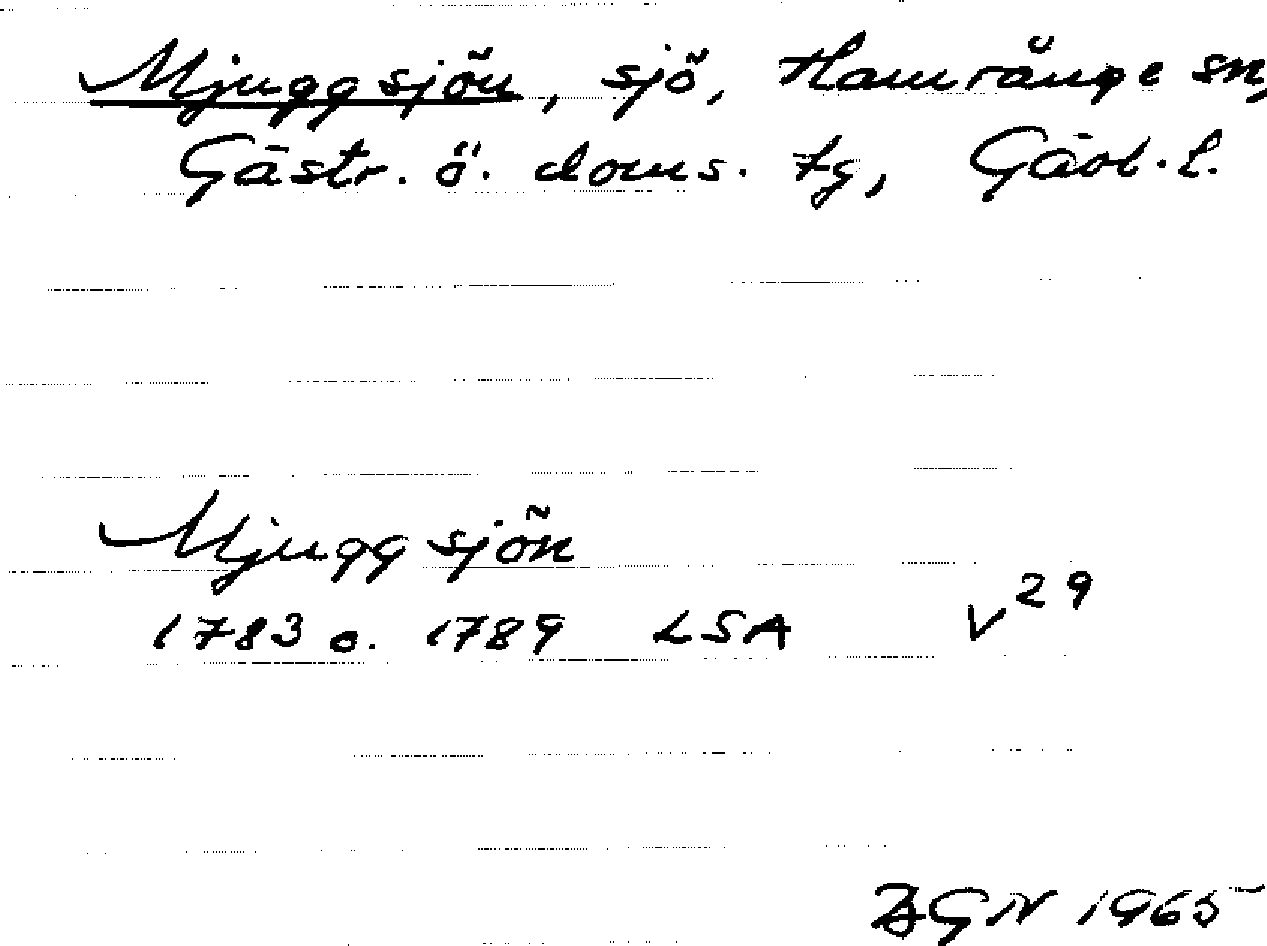 Mjuggsjön, sjö, Hamrånge sn,
Gästr. ö. doms. tg, Gävl. l.
Mjuggsjön
1783 o. 1789 LSA V29
BGN 1965